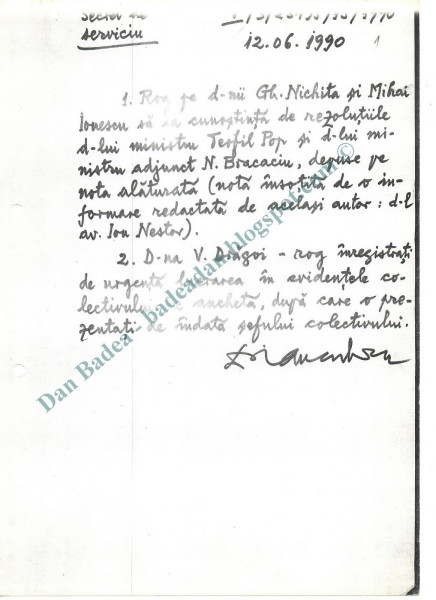 Secret de
serviciu
12.06.1990 1
1. Rog pe d-nii Gh. Nichita și Mihai
Ionescu să ia cunoștință de rezoluțiile
d-lui ministru Teofil Pop și d-lui mi-
nistru adjunct N. Bracaciu, depuse pe
nota alăturată (notă însoțită de o in-
formare redactată de același autor : d-l
av. Ion Nestor).
2. D-na V. Dragoi - rog înregistrați
de urgență lucrarea în evidențele co-
lectivului de anchetă, după care o pre-
zentați de îndată șefului colectivului.
Dan Badea - badeadan.blogspot.com ©